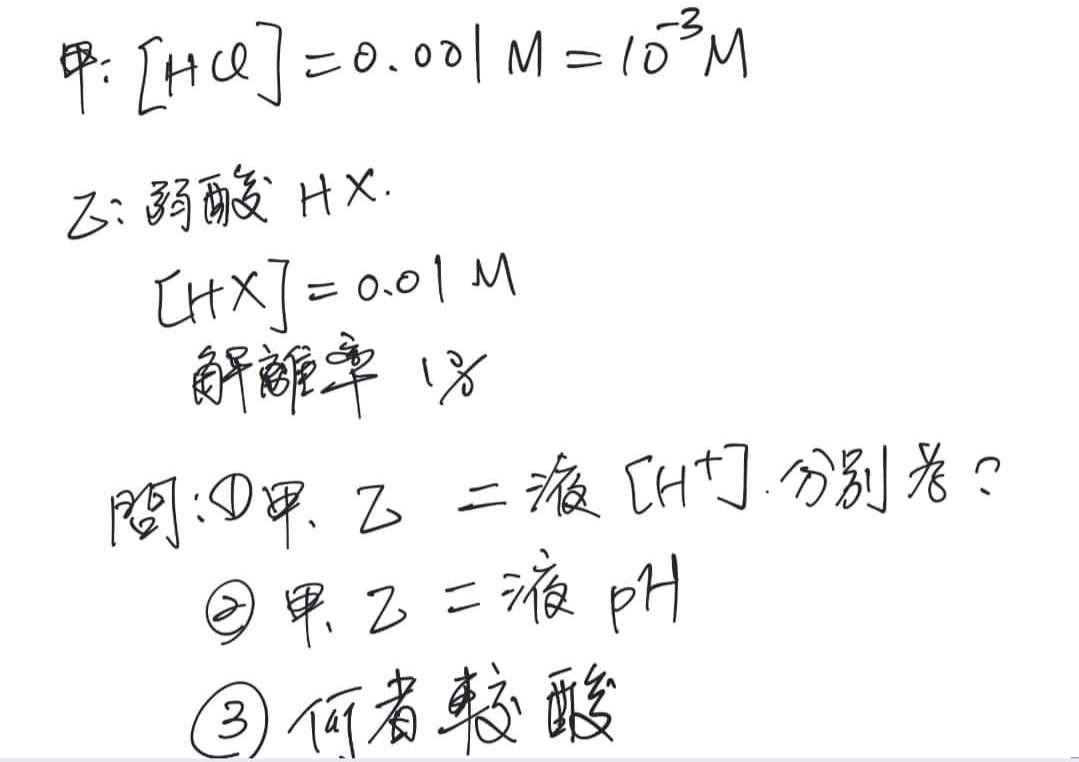 甲: [HCl] = 0.001 M = 10⁻³M
乙: 弱酸 HX.
[HX] = 0.01 M
解離率 1%
問: ①甲、乙 二液 [H⁺] 分別為?
② 甲、乙 二液 pH
③ 何者較酸